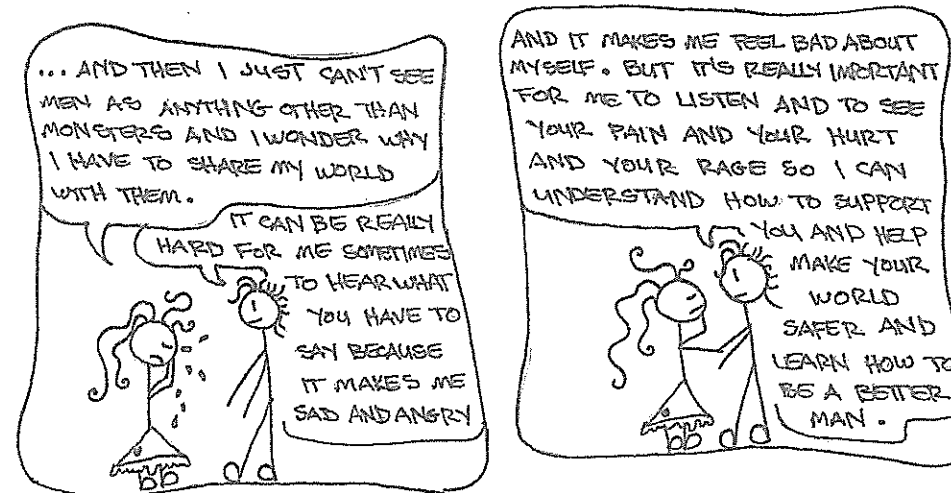 ... AND THEN I JUST CAN'T SEE
MEN AS ANYTHING OTHER THAN
MONSTERS AND I WONDER WHY
I HAVE TO SHARE MY WORLD
WITH THEM.
IT CAN BE REALLY
HARD FOR ME SOMETIMES
TO HEAR WHAT
YOU HAVE TO
SAY BECAUSE
IT MAKES ME
SAD AND ANGRY
AND IT MAKES ME FEEL BAD ABOUT
MYSELF. BUT IT'S REALLY IMPORTANT
FOR ME TO LISTEN AND TO SEE
YOUR PAIN AND YOUR HURT
AND YOUR RAGE SO I CAN
UNDERSTAND HOW TO SUPPORT
YOU AND HELP
MAKE YOUR
WORLD
SAFER AND
LEARN HOW TO
BE A BETTER
MAN.